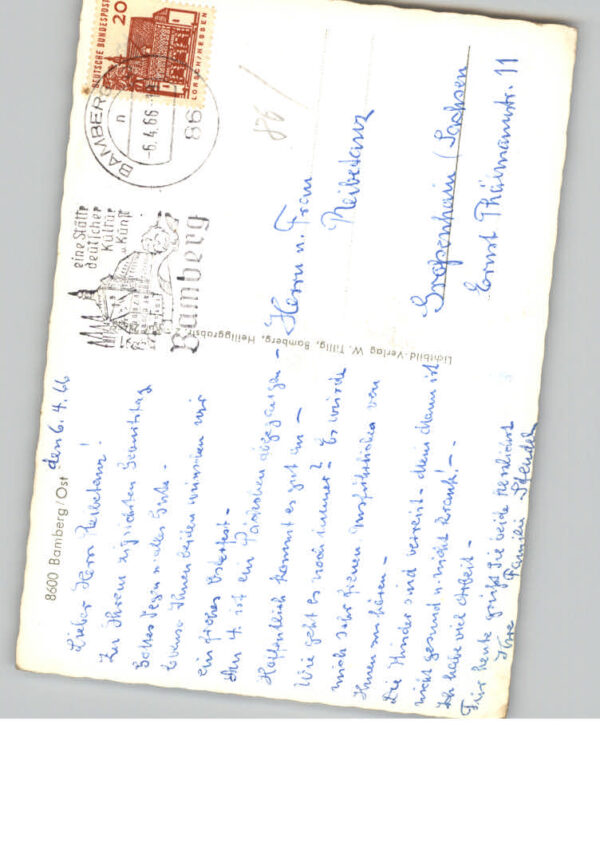 8600 Bamberg/Ost
den 6. 4. 66
Lieber Herr Reibetanz!
Zu Ihrem nächsten Geburtstag
Gottes Segen u. alles Gute -
Ebenso Ihnen beiden wünschen wir
ein frohes Osterfest -
Am 4. ist ein Päckchen abgegangen -
Hoffentlich kommt es gut an -
Wie geht es noch immer? - Es würde
mich sehr freuen Ausführliches von
Ihnen zu hören -
Die Kinder sind verreist - Mein Mann ist
nicht gesund u. nicht krank! -
Ich habe viel Arbeit -
Für heute grüßt Sie beide herzlichst
Ihre
Familie
Lichtbild-Verlag W. Tillig, Bamberg, Heiliggrabstr.
DEUTSCHE BUNDESPOST
20
LORSCH/HESSEN
BAMBERG
n
-6.4.66-
86
eine Stätte
deutscher
Kultur
u. Kunst
Bamberg
Herrn u. Frau
Reibetanz
Großenhain / Sachsen
Ernst Thälmannstr. 11